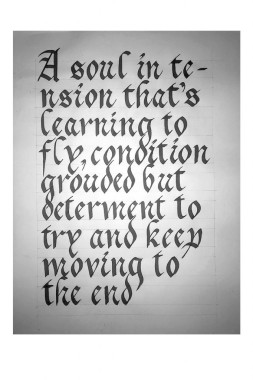 A soul in te-
nsion that's
learning to
fly, condition
grouded but
determent to
try and keep
moving to
the end